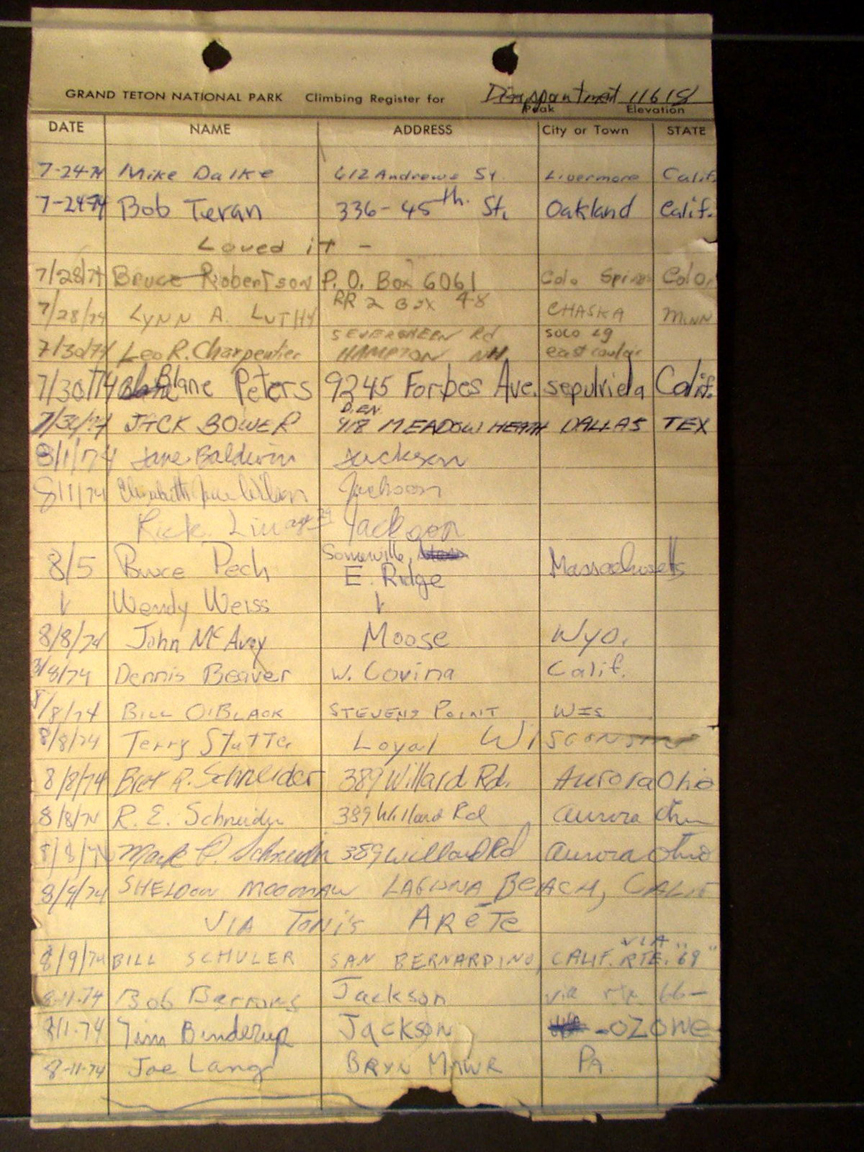 GRAND TETON NATIONAL PARK Climbing Register for Disappointment 11618
Peak Elevation
DATE NAME ADDRESS City or Town STATE
7-24-74 Mike Dalke 612 Andrews St Livermore Calif.
7-24-74 Bob Teran 336-45th. St. Oakland Calif.
Loved it -
7/28/74 Bruce Robertson P.O. Box 6061 Colo Springs Colo.
7/28/74 LYNN A. LUTHY RR 2 Box 48 CHASKA MINN
7/30/74 Leo R. Charpentier 5 EVERGREEN Rd HAMPTON NH solo
7/30/74 Blane Peters 9245 Forbes Ave. sepulvida Calif.
7/30/74 JACK BOWER 418 MEADOW HEATH DALLAS TEX
8/1/74 Jane Baldwin Jackson
8/1/74 Elizabeth Wilson Jackson
Rick Jackson
8/5 Bruce Pech Somerville, Massachusetts
E. Ridge
Wendy Weiss
8/8/74 John McAvoy Moose Wyo.
8/8/74 Dennis Beaver W. Covina Calif.
8/8/74 BILL O'BLACK STEVENS POINT WIS
8/8/74 Terry Loyal Wisconsin
8/8/74 Bret R. Schneider 389 Willard Rd. Aurora Ohio
8/8/74 R. E. Schneider 389 Willard Rd Aurora Ohio
8/8/74 Mark P. Schneider 389 Willard Rd Aurora Ohio
8/9/74 SHELDON LAGUNA BEACH, CALIF
VIA TONI'S ARÊTE
8/9/74 BILL SCHULER SAN BERNARDINO, CALIF. VIA RTE. "69"
8-11-74 Bob Jackson via rte 66-
8-11-74 Tim Binderup Jackson -OZONE
8-11-74 Joe Lang BRYN MAWR PA